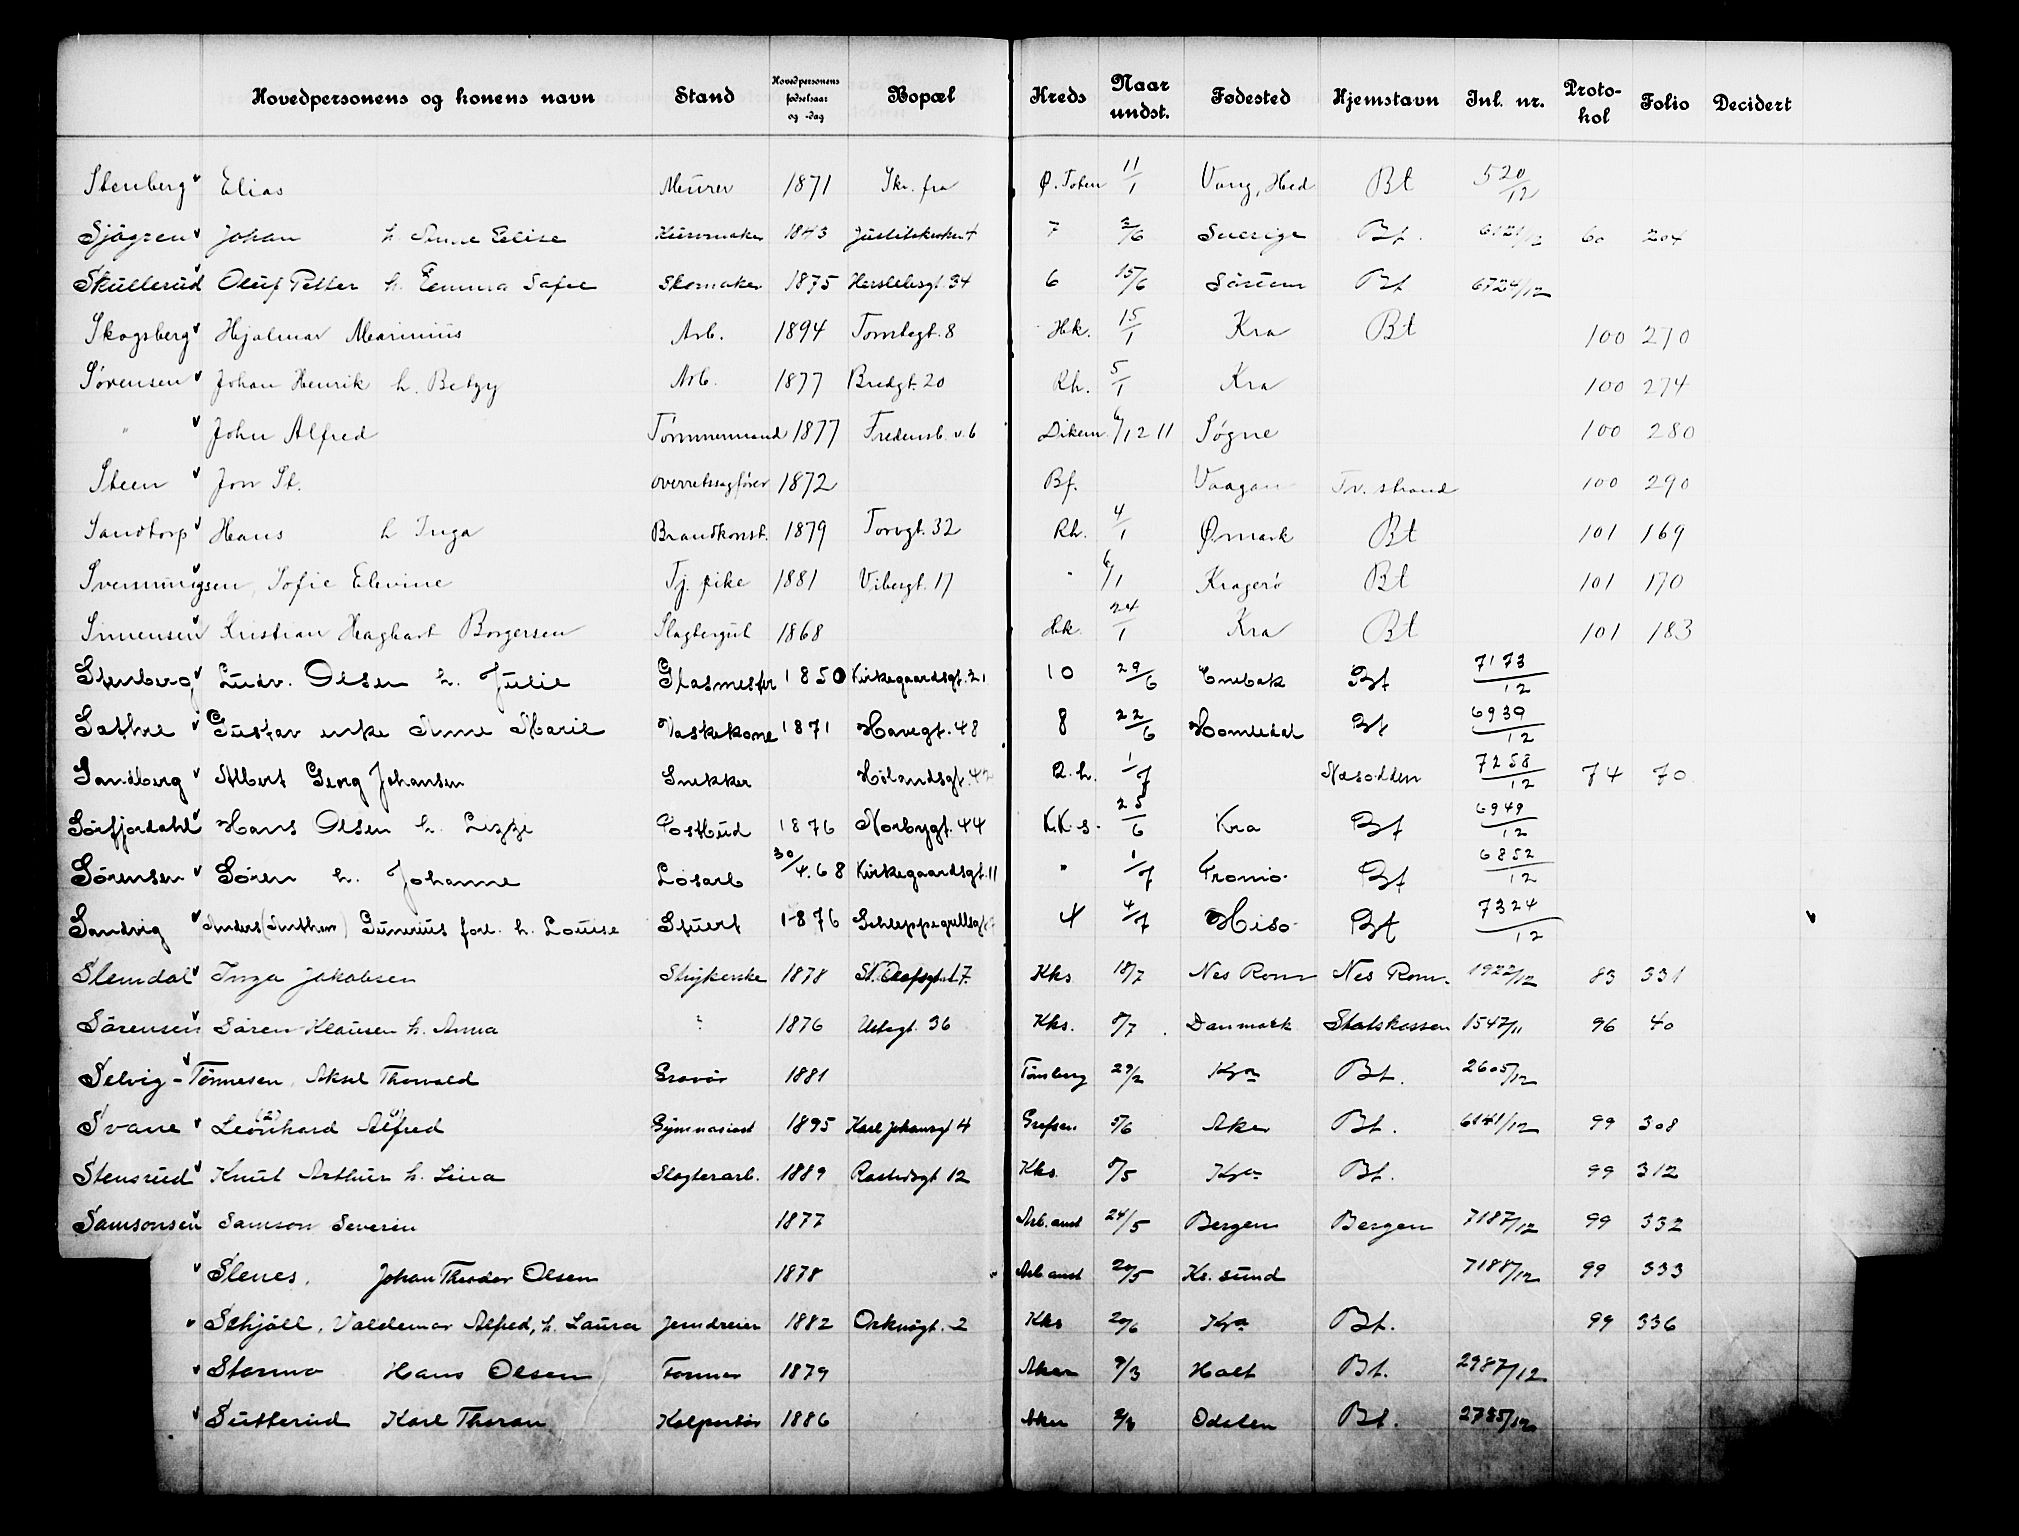 Hovedpersonens og konens navn Stand Hovedpersonens fødselsaar og -dag Bopæl Kreds Naar undst. Fødested Hjemstavn Inl. nr. Protokol Folio Decidert
Stenberg Elias Murer 1871 Skr. fra Ø. Toten 11/1 Vang, Hed Bt 520/12
Sjögren Johan h. Anne Elise 1843 7 2/6 Sverige Bt. 6121/12 60 204
Skullerud Oluf Petter h. Emma Sofie Skomaker 1875 Herslebsgt. 34 6 15/6 Sörum Bt 6724/12
Skogsberg Hjalmar Marinius Arb. 1894 Tomtegt. 8 Hk. 15/1 Kra Bt 100 270
Sørensen Johan Henrik h. Betzy Arb. 1877 Bredgt. 20 Rh. 5/1 Kra 100 274
" John Alfred Tømmermand 1877 Fredensb. v. 6 Dikem. 6/12 11 Søgne 100 280
Steen Jon St. overretssagfører 1872 Bf. Vaagan Tv. strand 100 290
Sandtorp Hans h Inga Brandkonst. 1879 Torvgt. 32 Rh. 4/1 Ømark Bt 101 169
Svenningsen, Sofie Elevine Tj. pike 1881 Vibesgt. 17 " 6/1 Kragerö Bt 101 170
Simensen Kristian Haghart Borgersen Slagtergut 1868 Hk. 24/1 Kra Bt 101 183
Stenberg Ludv. Olsen h. Julie Glasmester 1850 Kirkegaardsgt. 21 10 29/6 Enebak Bt 7173/12
Sæthre Gustav enke Anne Marie Vaskekone 1871 Havegt. 48 8 22/6 Homledal Bt 6939/12
Sandberg Albert Georg Johansen Snekker Hølandsgt. 42 R. h. 1/7 Næsodden 7258/12 74 70
Sørfjordahl Hans Olsen h. Lizzi Postbud 1876 Norbygt. 44 K.K.s. 25/6 Kra Bt 6949/12
Sørensen Søren h. Johanne Løsarb 30/4.68 Kirkegaardsgt. 11 " 1/7 Tromö. Bt 6852/12
Sandvig Anders (Anthon) Gunerius forl. h. Louise Stuert 1876 Schleppegrellsgt. 4 4/7 Hisö. Bt 7324/12
Stemdal Inga Jakobsen Strykerske 1878 St. Olafsgt. 17. Kks 18/7 Nes Rom. Nes Rom. 1922/12 83 331
Sörensen Sören Klausen h. Anna 1876 Urtegt. 36 Kks. 8/7 Danmark Statskassen 1547/11 96 40
Selvig-Tönnesen, Aksel Thorvald Gravör 1881 Tönsberg 29/2 Kra Bt. 2605/12
Svane Leonhard (2) Alfred (1) Gymnasiast 1895 Karl Johansgt 4 Grefsen 5/6 Aker Bt. 6141/12 99 308
Stensrud Knut Arthur h. Lina Slagterarb. 1889 Rathkesgt 12 Kks. 8/5 Kra Bt. 99 312
Samsonsen Samson Severin 1877 Arb.anst 24/5 Bergen Bergen 7187/12 99 332
Slenes, Johan Theodor Olsen 1878 Arb.anst 20/5 Kr.sund 7188/12 99 333
Schjöll, Valdemar Alfred, h. Laura Jerndreier 1882 Orknögt. 2 Kks 20/6 Kra Bt. 99 336
Stormo Hans Olsen Former 1879 Aker 9/3 Holt Bt. 2987/12
Sutterud Karl Thoran Kolportör 1886 Aker Odalen Bt. 2785/12